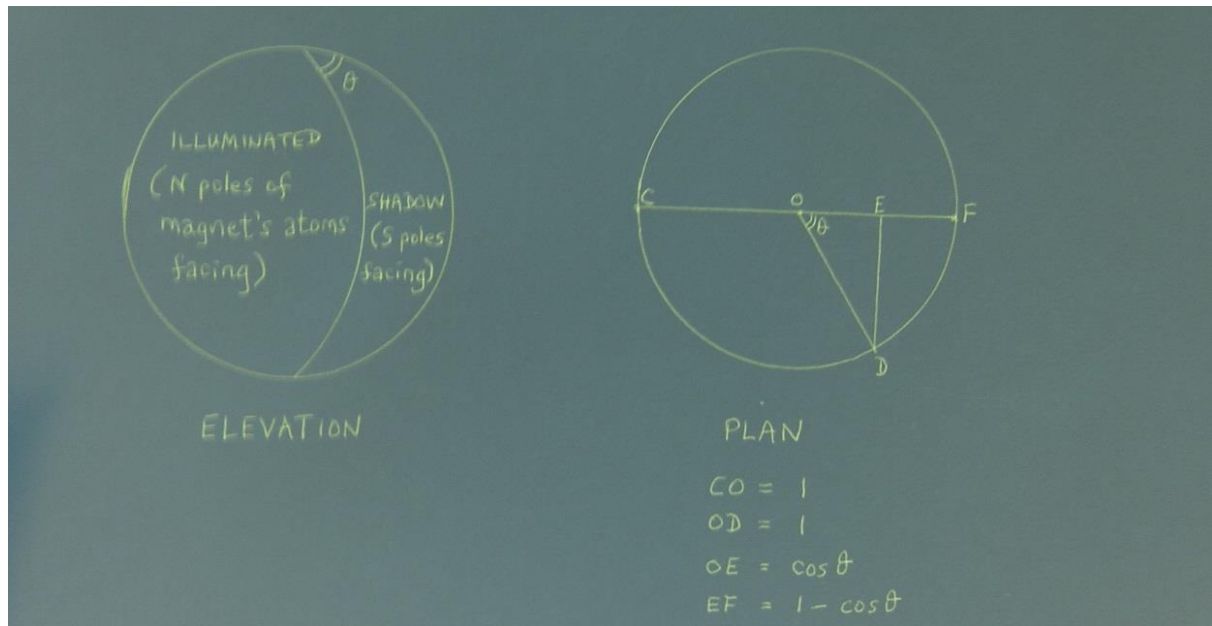 θ
ILLUMINATED
(N poles of
magnet's atoms
facing)
SHADOW
(S poles
facing)
ELEVATION
C
O
E
F
θ
D
PLAN
CO = 1
OD = 1
OE = cos θ
EF = 1 - cos θ